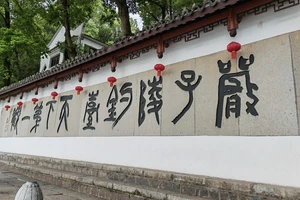 嚴子陵釣臺天下第一觀